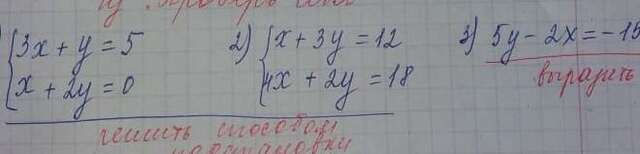 3x + y = 5
x + 2y = 0
2) x + 3y = 12
4x + 2y = 18
3) 5y - 2x = -15
выразить
решить способом
подстановки